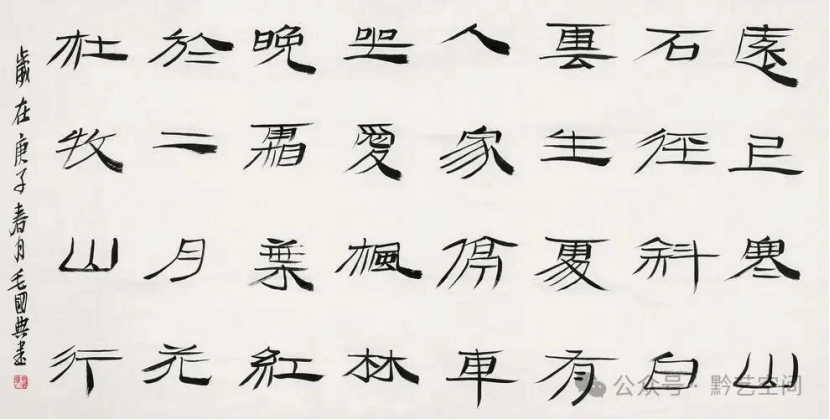 遠上寒山
石徑斜白
雲生處有
人家停車
坐愛楓林
晚霜葉紅
於二月花
杜牧山行
歲在庚子春月毛國典書
公众号·黔艺空间